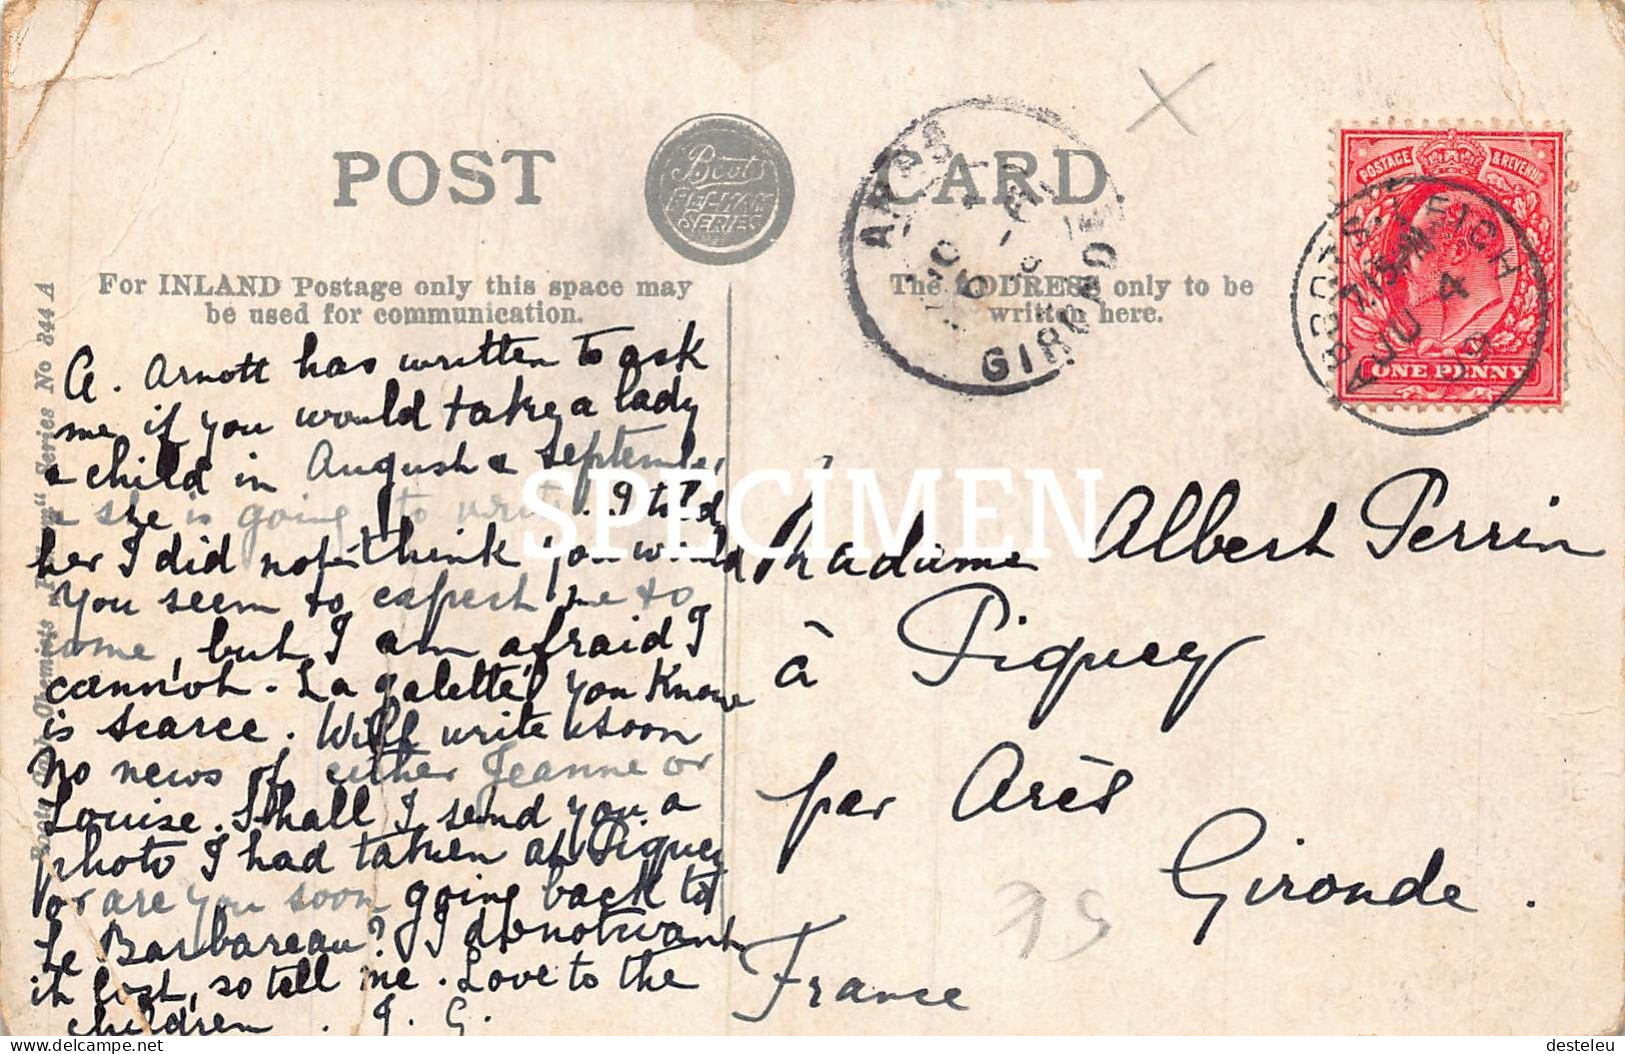 POST CARD.
Boots
"PELHAM"
SERIES
For INLAND Postage only this space may
be used for communication.
The ADDRESS only to be
written here.
Boots Cash Chemists "Pelham" Series No 344 A
POSTAGE & REVENUE
ONE PENNY
ABBOTS-LEIGH
7.15 PM
JU 4
09
ARES
GIRONDE
A. Arnott has written to ask
me if you would take a lady
& child in August & September
& she is going to write. I told
her I did not think you would
You seem to expect me to
come, but I am afraid I
cannot. La galette, you know
is scarce. Will write soon
No news of either Jeanne or
Louise. Shall I send you a
photo I had taken at Piquey
or are you soon going back to
Le Barbareau? I do not want
it lost, so tell me. Love to the
children. J. G.
Madame Albert Perrin
à Piquey
par Arès
Gironde.
France
SPECIMEN
delcampe.net
desteleu